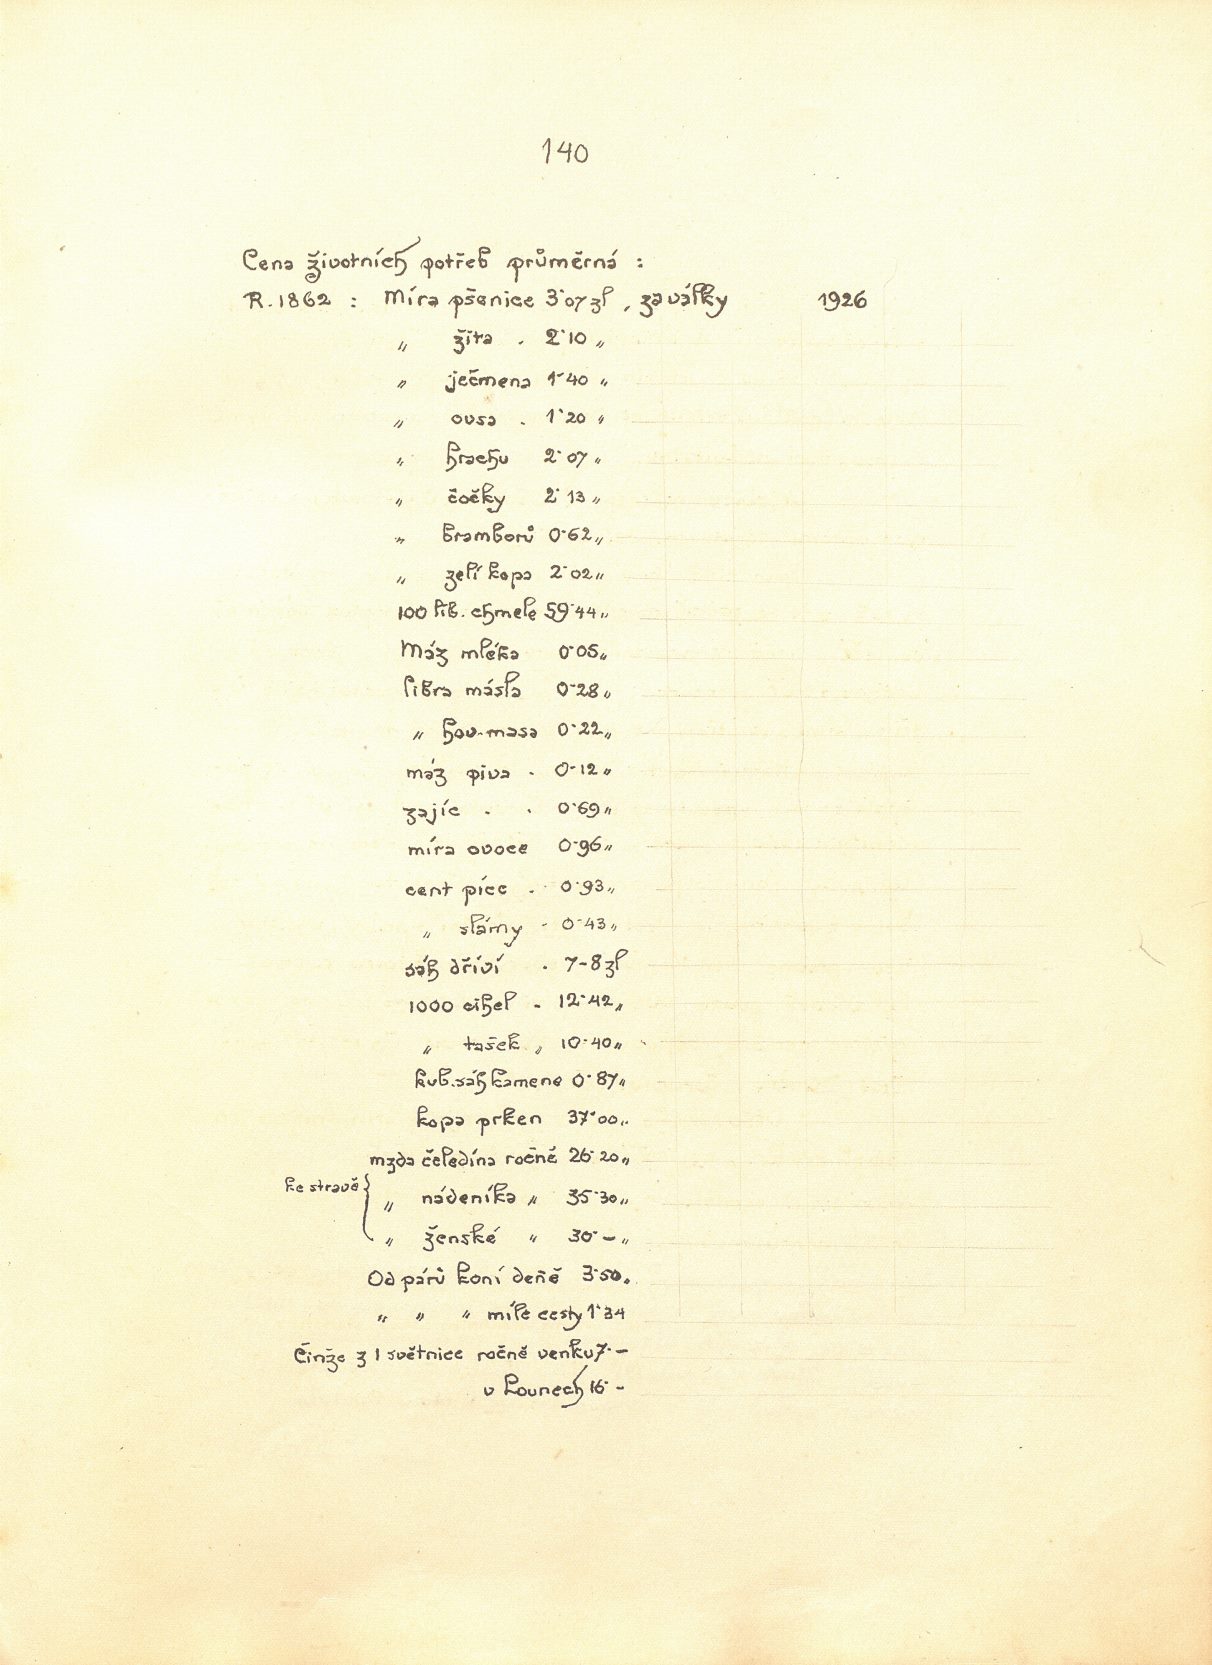 140
Cena životních potřeb průměrná :
R. 1862 : Míra pšenice 3·07 zl , za války 1926
„ žita . 2·10 „
„ ječmena 1·40 „
„ ovsa . 1·20 „
„ hrachu 2·07 „
„ čočky 2·13 „
„ bramborů 0·62 „
„ zelí kopa 2·02 „
100 lib. chmele 59·44 „
Máz mléka 0·05 „
libra másla 0·28 „
„ hov. masa 0·22 „
máz piva . 0·12 „
zajíc . . 0·69 „
míra ovoce 0·96 „
cent píce . 0·93 „
„ slámy . 0·43 „
sáh dříví . 7-8 zl
1000 cihel . 12·42 „
„ tašek „ 10·40 „
kub. sáh kamene 0·87 „
kopa prken 37·00 „
mzda čeledína ročně 26·20 „
ke stravě { „ nádeníka „ 35·30 „
„ ženské „ 30·— „
Od párů koní deňě 3·50 „
„ „ „ míle cesty 1·34
Činže z 1 světnice ročně venku 7·—
v Lounech 16·—